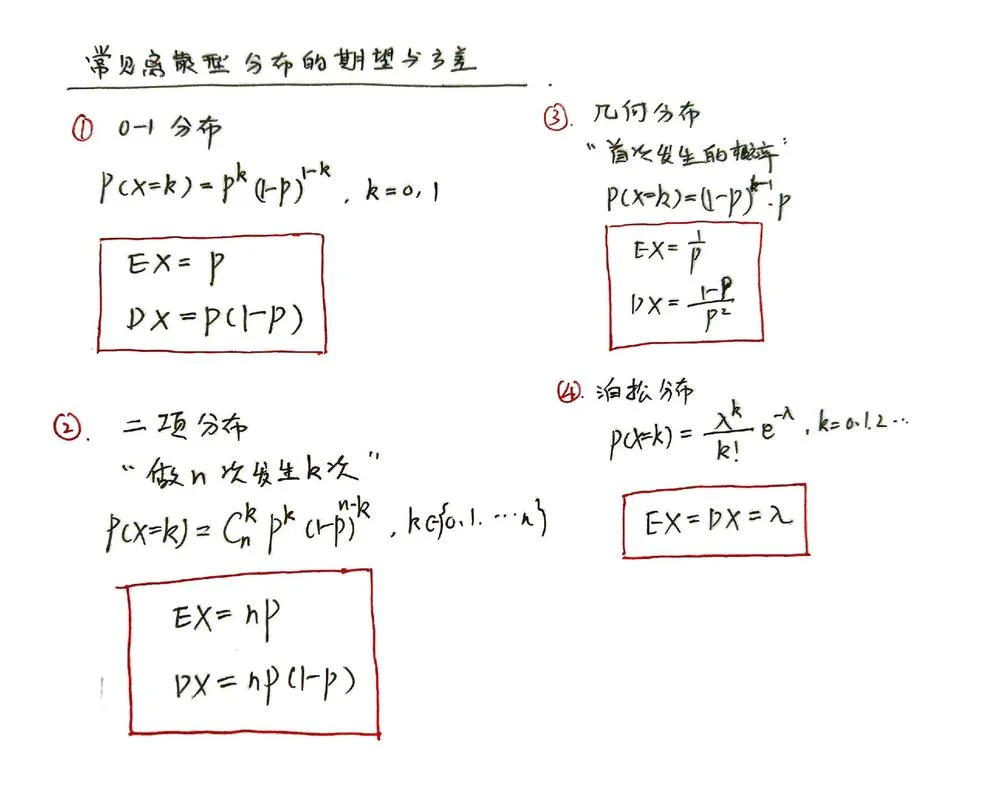 常见离散型分布的期望与方差
① 0-1 分布
P(X=k)=p^k(1-p)^{1-k}, k=0,1
EX=p
DX=p(1-p)
②. 二项分布
“做n次发生k次”
P(X=k)=C_n^k p^k (1-p)^{n-k}, k∈{0.1.…n}
EX=np
DX=np(1-p)
③. 几何分布
“首次发生的概率”
P(X=k)=(1-p)^{k-1}·p
EX=\frac{1}{p}
DX=\frac{1-p}{p^2}
④. 泊松分布
P(X=k)=\frac{λ^k}{k!}e^{-λ}, k=0.1.2…
EX=DX=λ